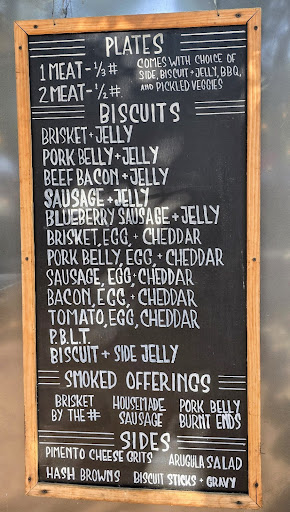 PLATES
1 MEAT - 1/3 #
2 MEAT - 1/2 #
COMES WITH CHOICE OF
SIDE, BISCUIT + JELLY, BBQ,
AND PICKLED VEGGIES
BISCUITS
BRISKET + JELLY
PORK BELLY + JELLY
BEEF BACON + JELLY
SAUSAGE + JELLY
BLUEBERRY SAUSAGE + JELLY
BRISKET, EGG, + CHEDDAR
PORK BELLY, EGG, + CHEDDAR
SAUSAGE, EGG, + CHEDDAR
BACON, EGG, + CHEDDAR
TOMATO, EGG, CHEDDAR
P.B.L.T.
BISCUIT + SIDE JELLY
SMOKED OFFERINGS
BRISKET
BY THE #
HOUSEMADE
SAUSAGE
PORK BELLY
BURNT ENDS
SIDES
PIMENTO CHEESE GRITS
ARUGULA SALAD
HASH BROWNS
BISCUIT STICKS + GRAVY